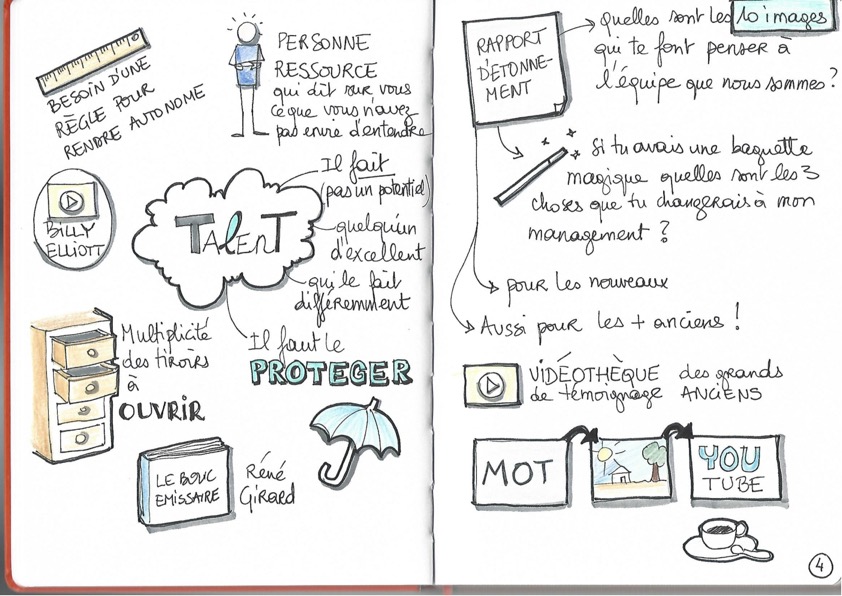 BESOIN D'UNE
RÈGLE POUR
RENDRE AUTONOME
PERSONNE
RESSOURCE
qui dit sur vous
ce que vous n'avez
pas envie d'entendre
BILLY
ELLIOTT
TALENT
Il fait
(pas un potentiel)
quelqu'un
d'excellent
qui le fait
différemment
Il faut le
PROTEGER
Multiplicité
des tiroirs
à
OUVRIR
LE BOUC
EMISSAIRE
Réné
Girard
RAPPORT
D'ETONNE-
MENT
quelles sont les 10 images
qui te font penser à
l'équipe que nous sommes?
Si tu avais une baguette
magique quelles sont les 3
choses que tu changerais à mon
management ?
pour les nouveaux
Aussi pour les + anciens !
VIDÉOTHÈQUE des grands
de témoignage ANCIENS
MOT
YOU
TUBE
4